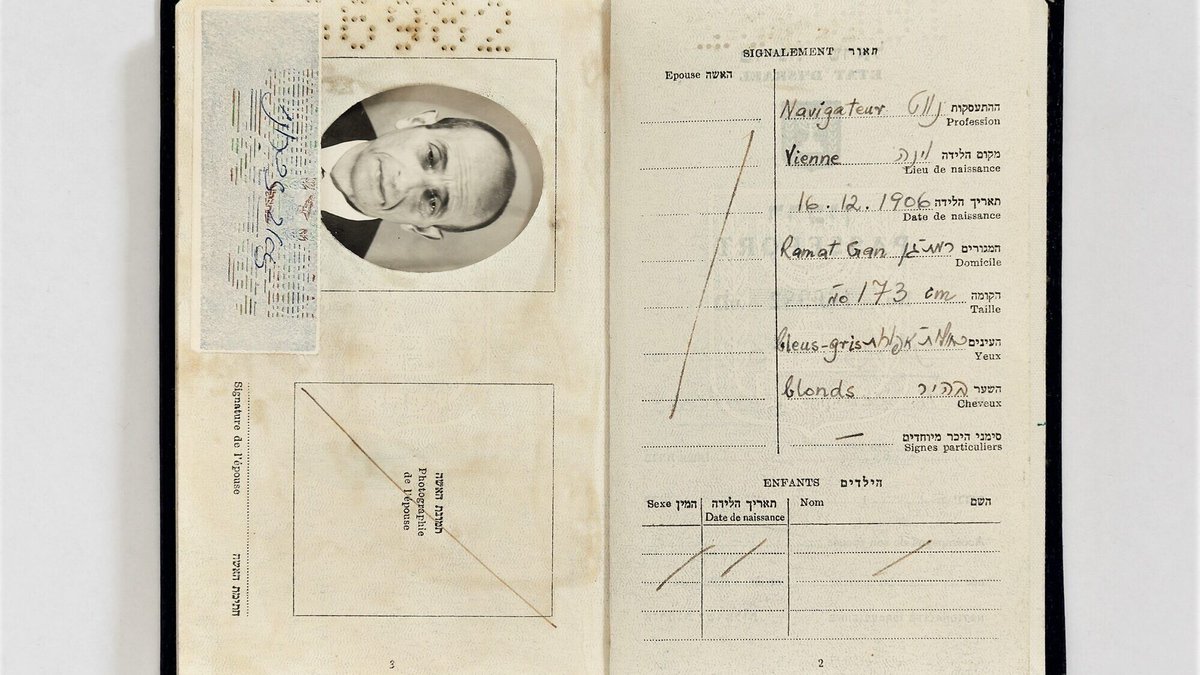 6982
Signature de l'épouse
חתימת האשה
תמונת האשה
Photographie
de l'épouse
3
SIGNALEMENT תאור
Epouse האשה
Navigateur נווט ההתעסקות
Profession
Vienne וינה מקום הלידה
Lieu de naissance
16.12.1906 תאריך הלידה
Date de naissance
Ramat Gan רמת-גן המגורים
Domicile
173 cm הקומה
Taille
bleus-gris העינים
Yeux
blonds בהיר השער
Cheveux
— סימני היכר מיוחדים
Signes particuliers
ENFANTS הילדים
Sexe המין תאריך הלידה Nom השם
Date de naissance
2